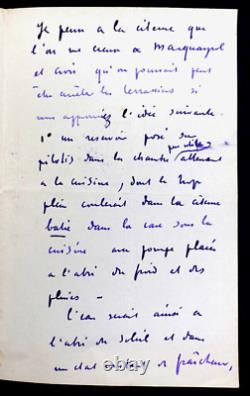 Je pense à la citerne que
l'on me creuse à
et crois qu'on pourrait peut
être arrêter les terrassiers si
vous approuviez l'idée suivante.
1° un réservoir posé sur
pilotis dans les
à la cuisine, dont le trop
plein coulerait dans la citerne
batie dans la cave sous la
cuisine avec pompe placée
à l'abri du froid et des
pluies –
L'eau serait ainsi à
l'abri du soleil et dans
un état de fraîcheur,
© ebay